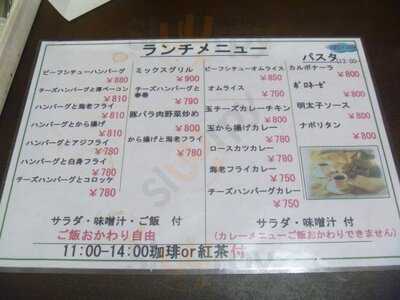 ランチメニュー
ビーフシチューハンバーグ
¥880
チーズハンバーグと厚ベーコン
¥810
ハンバーグと海老フライ
¥810
ハンバーグとから揚げ
¥780
ハンバーグとアジフライ
¥780
ハンバーグと白身フライ
¥780
チーズハンバーグとコロッケ
¥780
ミックスグリル
¥900
チーズハンバーグと春巻
¥790
豚バラ肉野菜炒め
¥800
から揚げと海老フライ
¥780
ビーフシチューオムライス
¥850
オムライス
¥750
玉チーズカレーチキン
¥800
玉から揚げカレー
¥780
ロースカツカレー
¥780
海老フライカレー
¥750
チーズハンバーグカレー
¥750
パスタ
カルボナーラ
¥800
ボロネーゼ
¥800
明太子ソース
¥800
ナポリタン
¥800
サラダ・味噌汁・ご飯 付
ご飯おかわり自由
サラダ・味噌汁 付
(カレーメニューご飯おかわりできません)
11:00-14:00珈琲or紅茶付